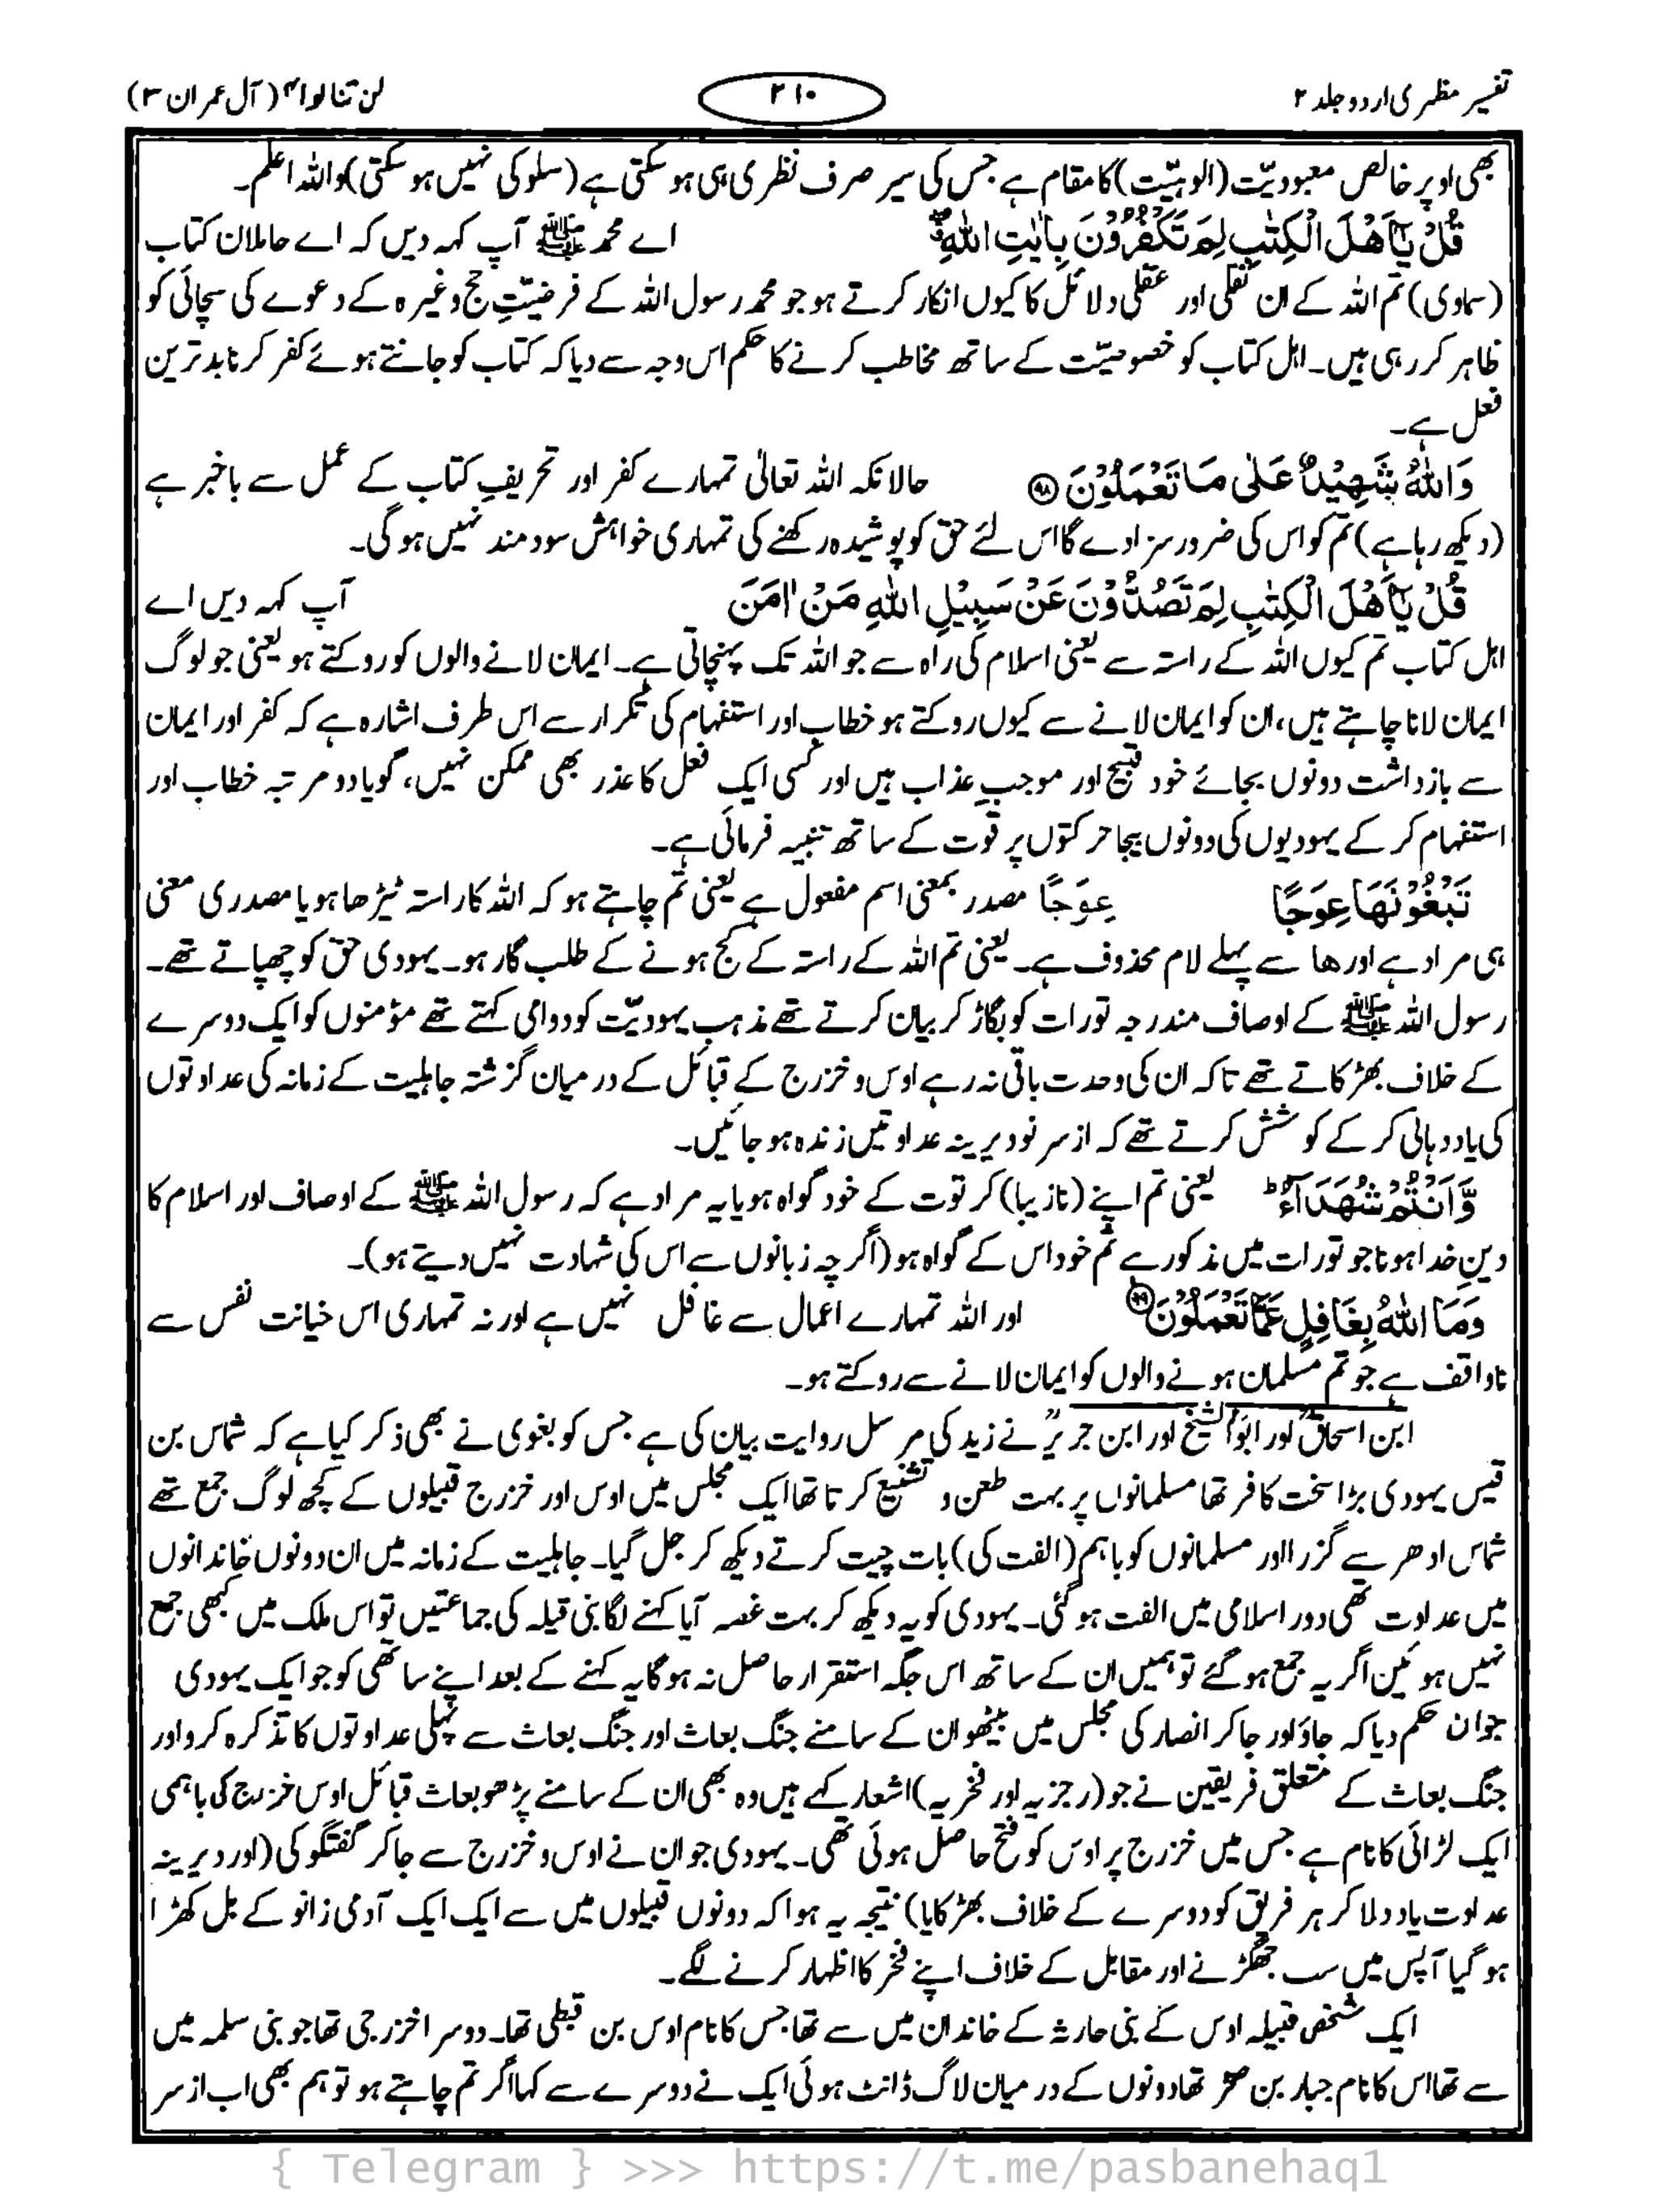 تفسیر مظہری اردو جلد ۲
۲۱۰
لن تنالوا۴ (آل عمران ۳)
بھی اوپر خالص معبودیّت (الوہیّت) کا مقام ہے جس کی سیر صرف نظری ہی ہو سکتی ہے (سلوکی نہیں ہو سکتی) واللہ اعلم۔
قُلْ یٰۤاَهْلَ الْكِتٰبِ لِمَ تَكْفُرُوْنَ بِاٰیٰتِ اللّٰهِ ۖ اے محمد ﷺ آپ کہہ دیں کہ اے حاملان کتاب
(سماوی) تم اللہ کے ان نقلی اور عقلی دلائل کا کیوں انکار کرتے ہو جو محمد رسول اللہ کے فرضیّتِ حج وغیرہ کے دعوے کی سچائی کو
ظاہر کر رہی ہیں۔ اہل کتاب کو خصوصیّت کے ساتھ مخاطب کرنے کا حکم اس وجہ سے دیا کہ کتاب کو جانتے ہوئے کفر کرنا بدترین
فعل ہے۔
وَاللّٰهُ شَهِیْدٌ عَلٰی مَا تَعْمَلُوْنَ ۹۸ حالانکہ اللہ تعالیٰ تمہارے کفر اور تحریفِ کتاب کے عمل سے باخبر ہے
(دیکھ رہا ہے) تم کو اس کی ضرور سزا دے گا اس لئے حق کو پوشیدہ رکھنے کی تمہاری خواہش سودمند نہیں ہو گی۔
قُلْ یٰۤاَهْلَ الْكِتٰبِ لِمَ تَصُدُّوْنَ عَنْ سَبِیْلِ اللّٰهِ مَنْ اٰمَنَ آپ کہہ دیں اے
اہل کتاب تم کیوں اللہ کے راستہ سے یعنی اسلام کی راہ سے جو اللہ تک پہنچاتی ہے۔ ایمان لانے والوں کو روکتے ہو یعنی جو لوگ
ایمان لانا چاہتے ہیں، ان کو ایمان لانے سے کیوں روکتے ہو خطاب اور استفہام کی تکرار سے اس طرف اشارہ ہے کہ کفر اور ایمان
سے بازداشت دونوں بجائے خود قبیح اور موجبِ عذاب ہیں اور کسی ایک فعل کا عذر بھی ممکن نہیں، گویا دو مرتبہ خطاب اور
استفہام کر کے یہودیوں کی دونوں بیجا حرکتوں پر قوت کے ساتھ تنبیہ فرمائی ہے۔
تَبْغُوْنَهَا عِوَجًا عِوَجًا مصدر بمعنی اسم مفعول ہے یعنی تم چاہتے ہو کہ اللہ کا راستہ ٹیڑھا ہو یا مصدری معنی
ہی مراد ہے اور ھا سے پہلے لام محذوف ہے۔ یعنی تم اللہ کے راستہ کے کج ہونے کے طلب گار ہو۔ یہودی حق کو چھپاتے تھے۔
رسول اللہ ﷺ کے اوصاف مندرجہ تورات کو بگاڑ کر بیان کرتے تھے مذہب یہودیّت کو دوامی کہتے تھے مؤمنوں کو ایک دوسرے
کے خلاف بھڑکاتے تھے تاکہ ان کی وحدت باقی نہ رہے اوس و خزرج کے قبائل کے درمیان گزشتہ جاہلیت کے زمانہ کی عداوتوں
کی یاد دہانی کر کے کوشش کرتے تھے کہ از سر نو دیرینہ عداوتیں زندہ ہو جائیں۔
وَّاَنْتُمْ شُهَدَآءُ ؕ یعنی تم اپنے (نازیبا) کرتوت کے خود گواہ ہو یا یہ مراد ہے کہ رسول اللہ ﷺ کے اوصاف اور اسلام کا
دینِ خدا ہونا جو تورات میں مذکور ہے تم خود اس کے گواہ ہو (اگرچہ زبانوں سے اس کی شہادت نہیں دیتے ہو)۔
وَمَا اللّٰهُ بِغَافِلٍ عَمَّا تَعْمَلُوْنَ ۹۹ اور اللہ تمہارے اعمال سے غافل نہیں ہے اور نہ تمہاری اس خیانت نفس سے
ناواقف ہے جو تم مسلمان ہونے والوں کو ایمان لانے سے روکتے ہو۔
ابن اسحاقؒ اور ابو الشیخ اور ابن جریرؒ نے زید کی مرسل روایت بیان کی ہے جس کو بغوی نے بھی ذکر کیا ہے کہ شماس بن
قیس یہودی بڑا سخت کافر تھا مسلمانوں پر بہت طعن و تشنیع کرتا تھا ایک مجلس میں اوس اور خزرج قبیلوں کے کچھ لوگ جمع تھے
شماس ادھر سے گزرا اور مسلمانوں کو باہم (الفت کی) بات چیت کرتے دیکھ کر جل گیا۔ جاہلیت کے زمانہ میں ان دونوں خاندانوں
میں عداوت تھی دور اسلامی میں الفت ہو گئی۔ یہودی کو یہ دیکھ کر بہت غصہ آیا کہنے لگا بنی قیلہ کی جماعتیں تو اس ملک میں کبھی جمع
نہیں ہوئیں اگر یہ جمع ہو گئے تو ہمیں ان کے ساتھ اس جگہ استقرار حاصل نہ ہو گا یہ کہنے کے بعد اپنے ساتھی کو جو ایک یہودی
جوان حکم دیا کہ جاؤ اور جا کر انصار کی مجلس میں بیٹھو ان کے سامنے جنگ بعاث اور جنگ بعاث سے پہلی عداوتوں کا تذکرہ کرو اور
جنگ بعاث کے متعلق فریقین نے جو (رجزیہ اور فخریہ) اشعار کہے ہیں وہ بھی ان کے سامنے پڑھو بعاث قبائل اوس خزرج کی باہمی
ایک لڑائی کا نام ہے جس میں خزرج پر اوس کو فتح حاصل ہوئی تھی۔ یہودی جوان نے اوس و خزرج سے جا کر گفتگو کی (اور دیرینہ
عداوت یاد دلا کر ہر فریق کو دوسرے کے خلاف بھڑکایا) نتیجہ یہ ہوا کہ دونوں قبیلوں میں سے ایک ایک آدمی زانو کے بل کھڑا
ہو گیا آپس میں سب جھگڑنے اور مقابل کے خلاف اپنے فخر کا اظہار کرنے لگے۔
ایک شخص قبیلہ اوس کے بنی حارثہ کے خاندان میں سے تھا جس کا نام اوس بن قبطی تھا۔ دوسرا خزرجی تھا جو بنی سلمہ میں
سے تھا اس کا نام جبار بن صخر تھا دونوں کے درمیان لاگ ڈانٹ ہوئی ایک نے دوسرے سے کہا اگر تم چاہتے ہو تو ہم بھی اب از سر
{ Telegram } >>> https://t.me/pasbanehaq1